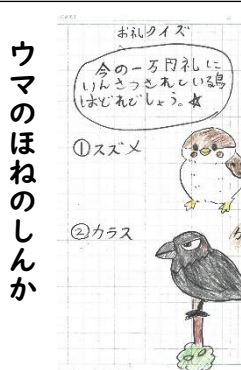 ウマのほねのしんか
お礼クイズ
今の一万円札に
いんさつされている鳥
はどれでしょう。☆
①スズメ
②カラス